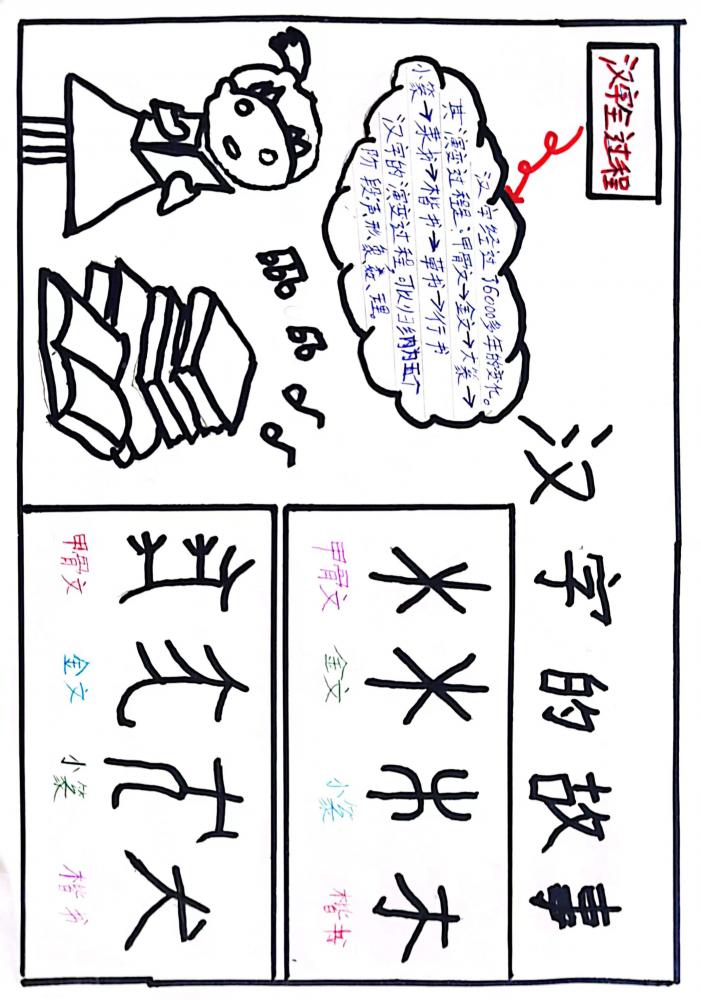 汉字全过程
汉字的故事
汉字经过了6000多年的变化。
其演变过程是:甲骨文→金文→大篆→
小篆→隶书→楷书→草书→行书
汉字的演变过程,可以归纳为五个
阶段声、形、象、数、理。
甲骨文 金文 小篆 楷书
甲骨文 金文 小篆 楷书